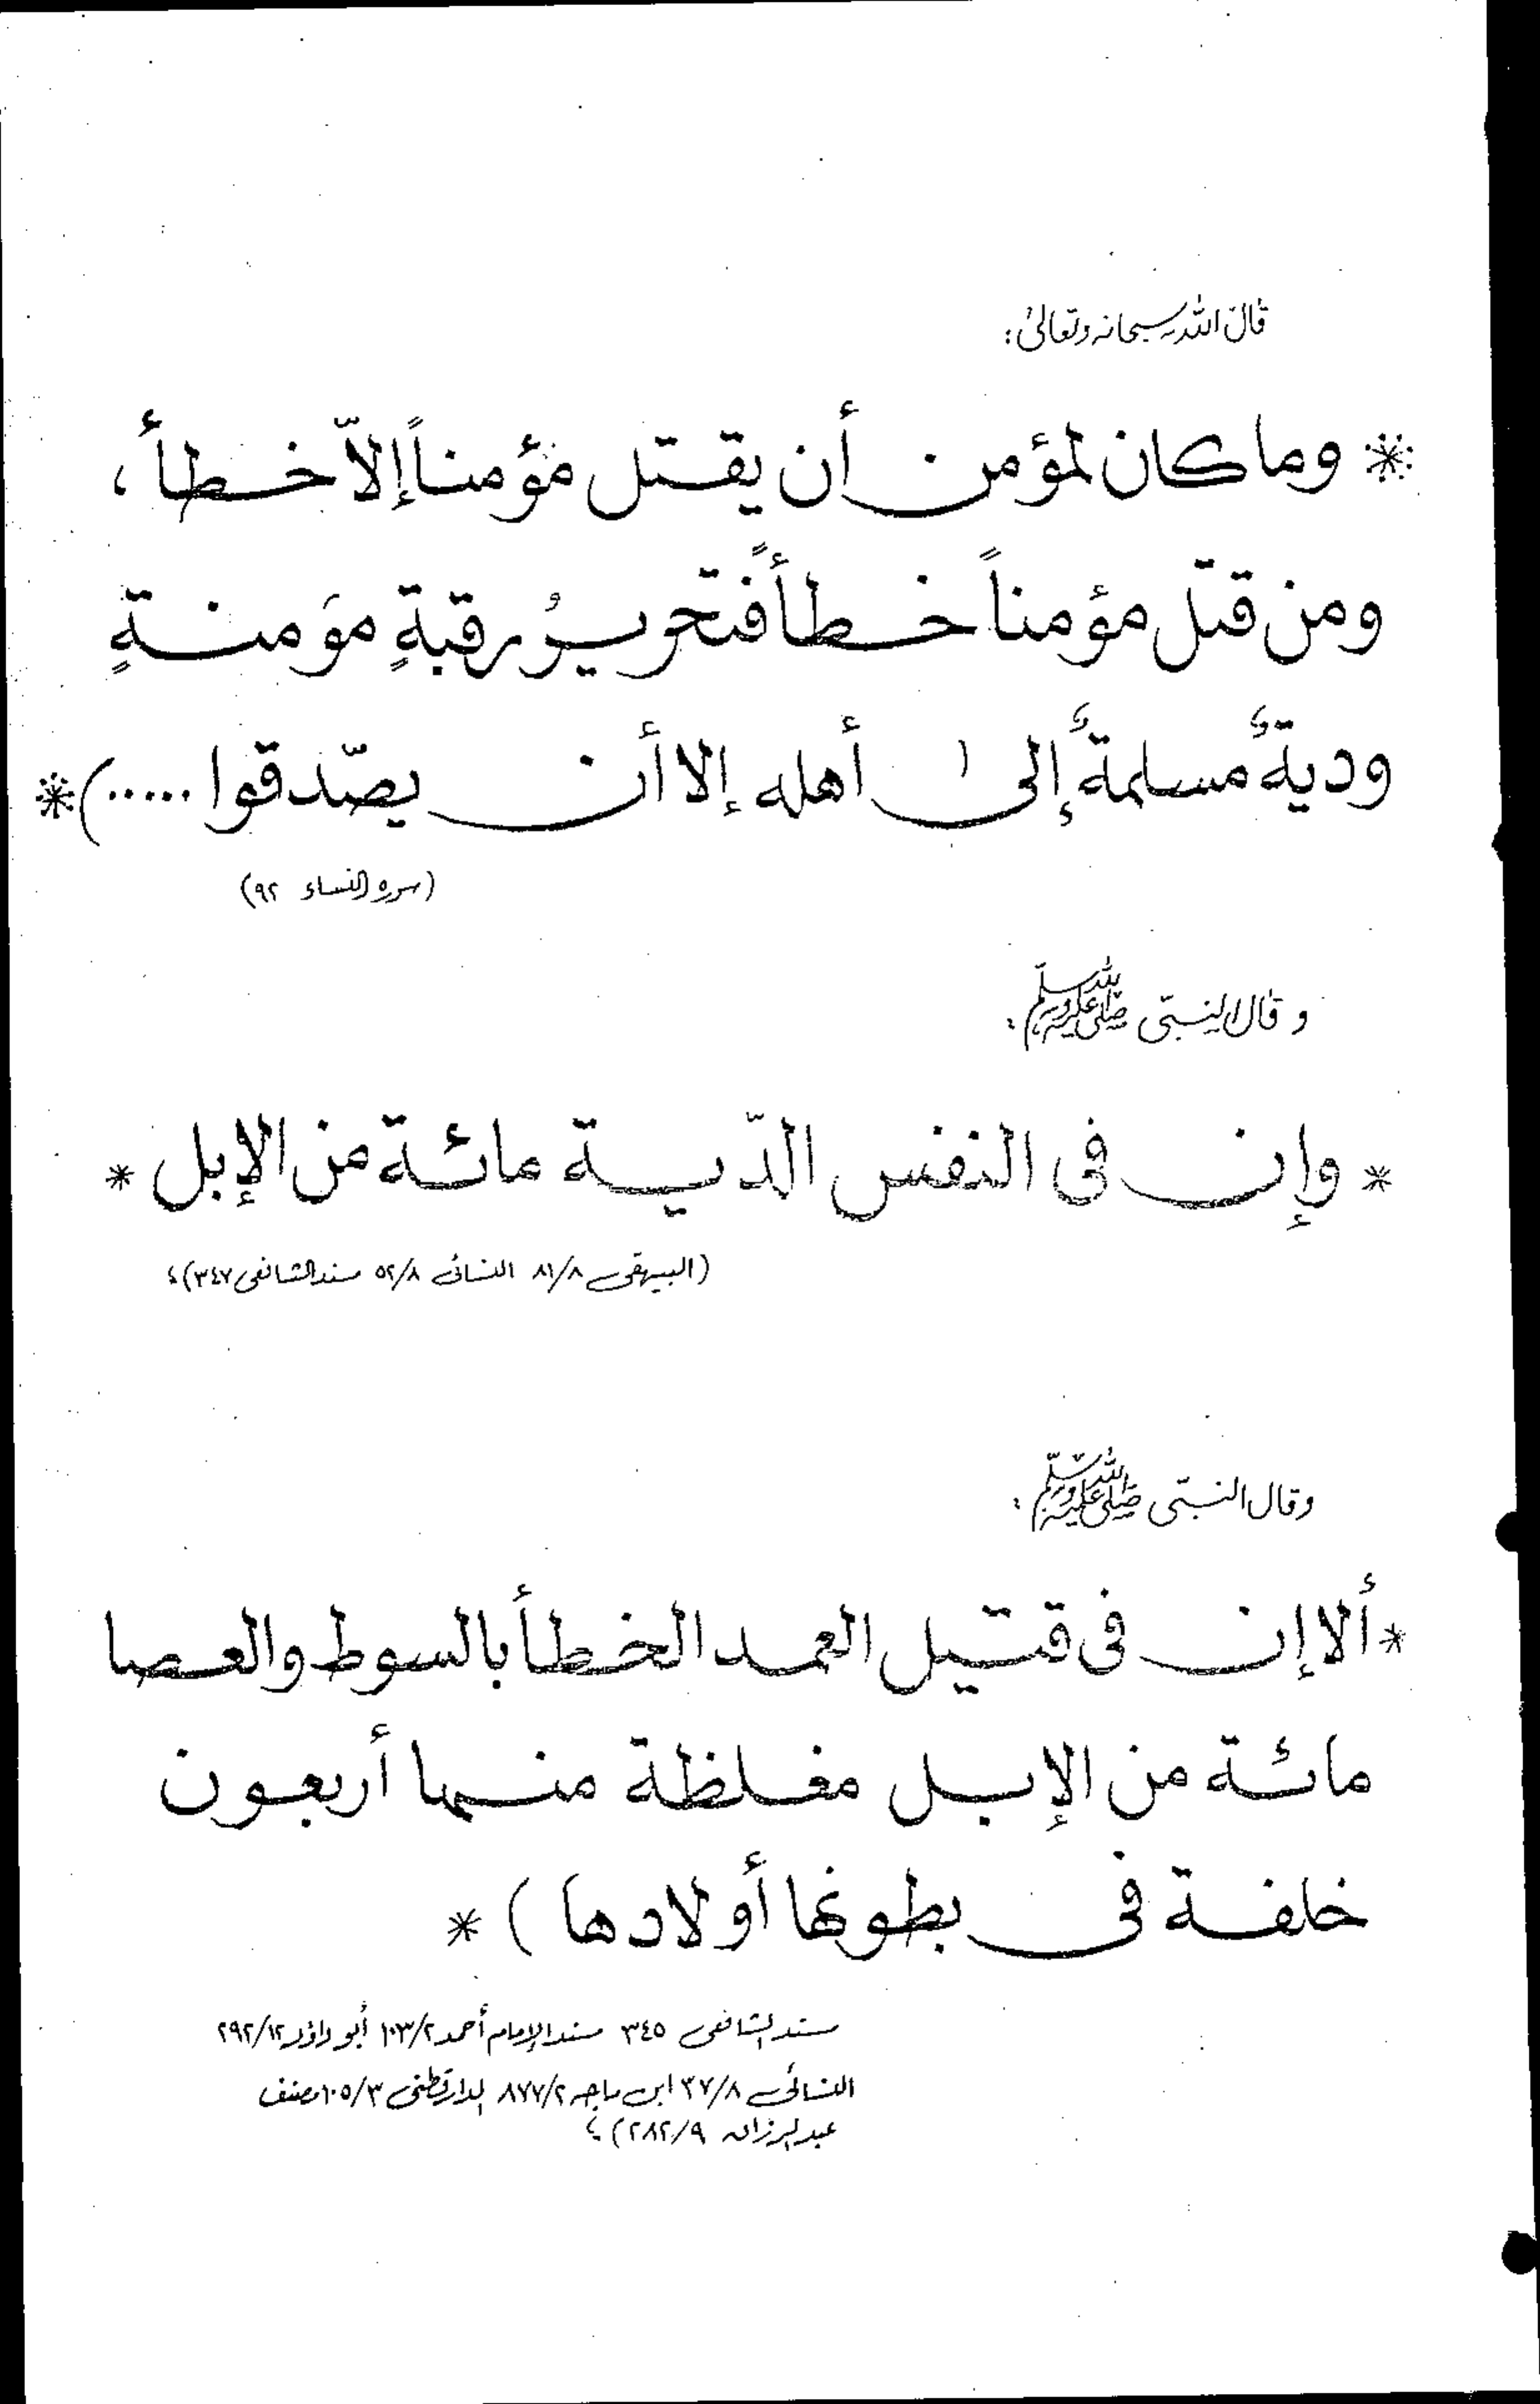 قال الله سبحانه وتعالىٰ:
* وما كان لمؤمن أن يقتل مؤمناً إلاّ خطأ،
ومن قتل مؤمناً خطأً فتحريرُ رقبةٍ مؤمنةٍ
وديةٌ مسلمةٌ إلىٰ أهله إلا أن يصّدقوا .....) *
(سوره النساء ٩٢)
و قال النبىّ ﷺ:
* وإن فى النفس الدّية مائة من الإبل *
(البيهقى ٨١/٨ النسائى ٥٢/٨ مسند الشافعى ٣٤٧)؛
وقال النبىّ ﷺ:
* ألا إن فى قتيل العمد الخطأ بالسوط والعصا
مائة من الإبل مغلظة منها أربعون
خلفة فى بطونها أولادها ) *
مسند الشافعى ٣٤٥ مسند الإمام أحمد ١٠٣/٢ أبو داؤد ٢٩٢/١٢
النسائى ٣٧/٨ ابن ماجه ٨٧٧/٢ الدارقطنى ١٠٥/٣ مصنف
عبد الرزاق ٢٨٢/٩)؛